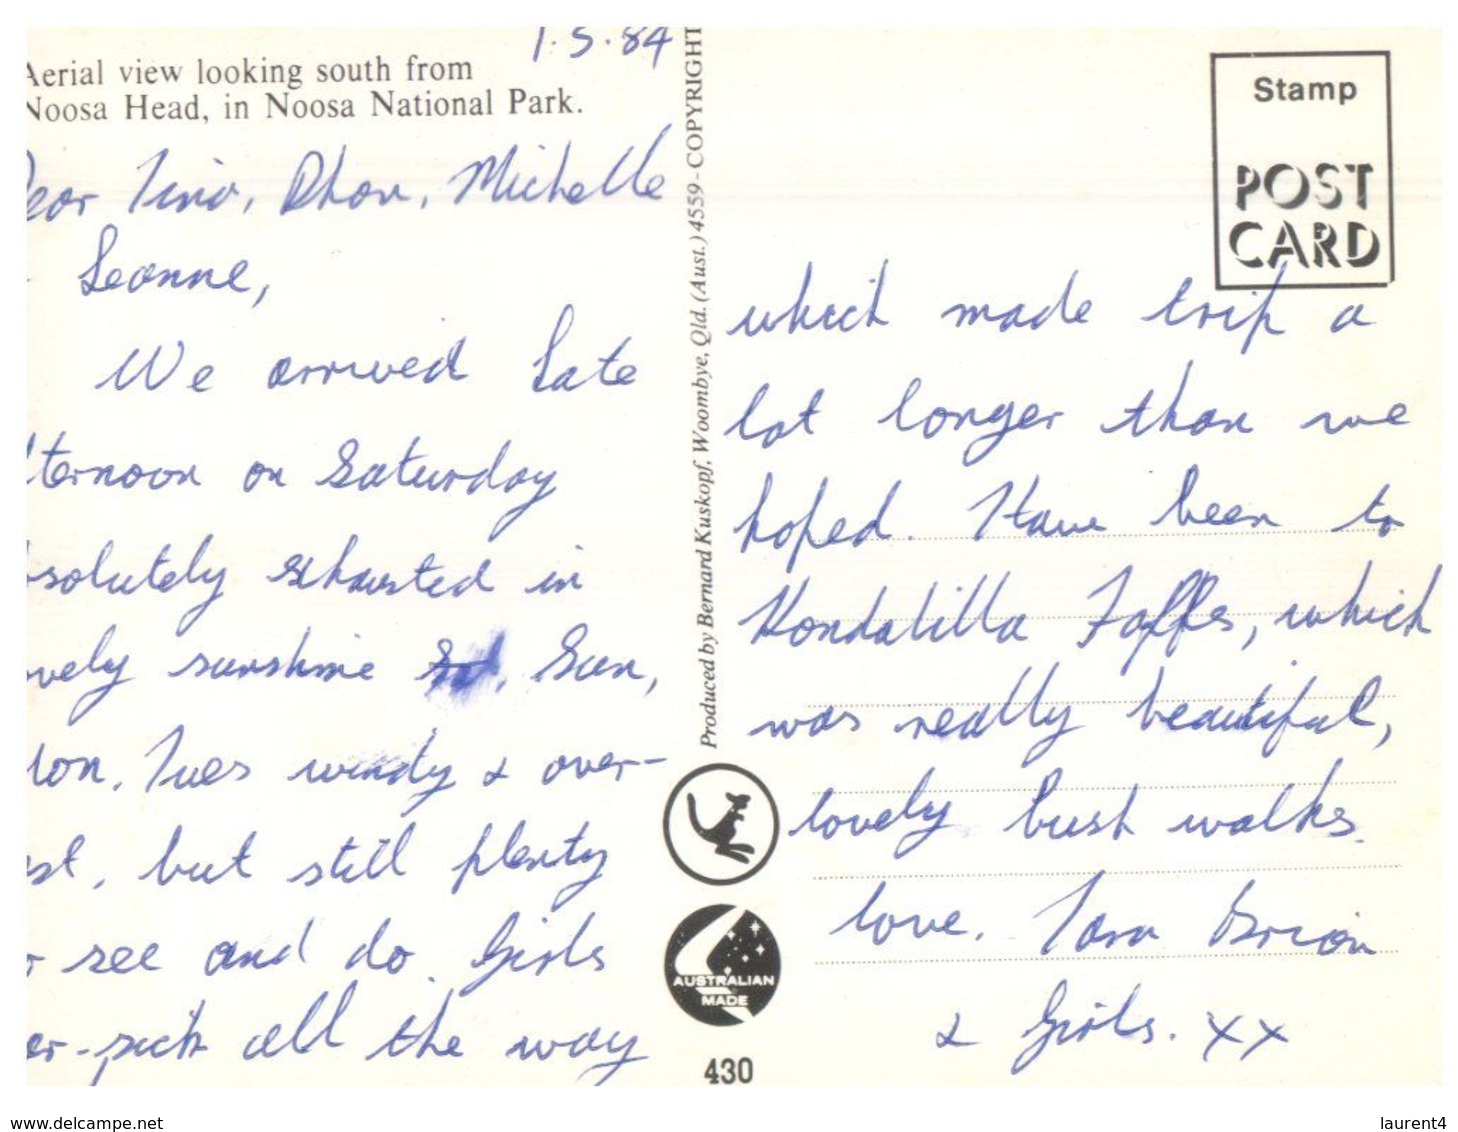 1.5.84
Aerial view looking south from
Noosa Head, in Noosa National Park.
Dear Tino, Rhon, Michelle
Leanne,
We arrived Late
fternoon on Saturday
bsolutely exhausted in
ovely sunshine Sun,
Mon. Tues windy & over-
st, but still plenty
o see and do. Girls
er-sick all the way
Produced by Bernard Kuskopf, Woombye, Qld. (Aust.) 4559 - COPYRIGHT
AUSTRALIAN
MADE
430
Stamp
POST
CARD
which made trip a
lot longer than we
hoped. Have been to
Kondalilla Falls, which
was really beautiful,
lovely bush walks.
love. Tara Brian
& Girls. xx
www.delcampe.net
laurent4